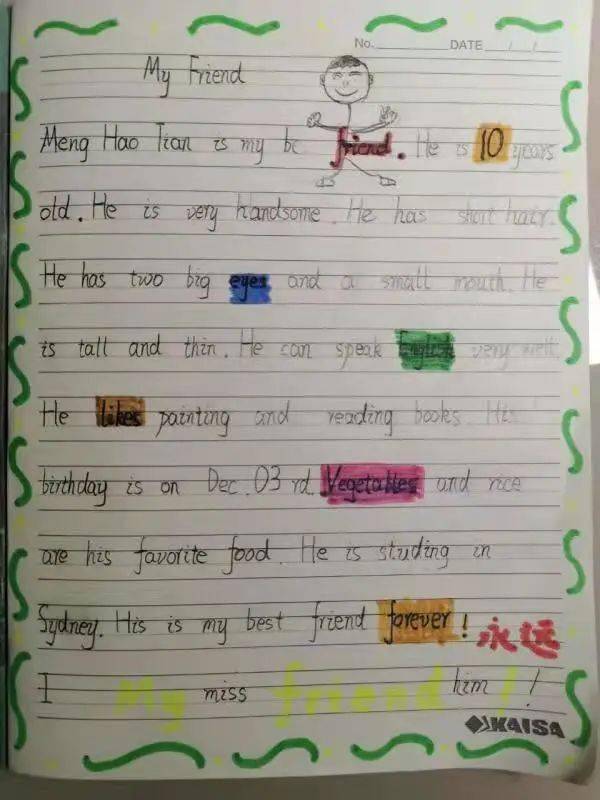 No. DATE / /
My Friend
Meng Hao Tian is my be friend. He is 10 years
old. He is very handsome. He has short hair.
He has two big eyes and a small mouth. He
is tall and thin. He can speak English very well.
He likes painting and reading books. His
birthday is on Dec. 03 rd. Vegetables and rice
are his favorite food. He is studing in
Sydney. His is my best friend forever! 永远
I miss him!
My friend!
KAISA